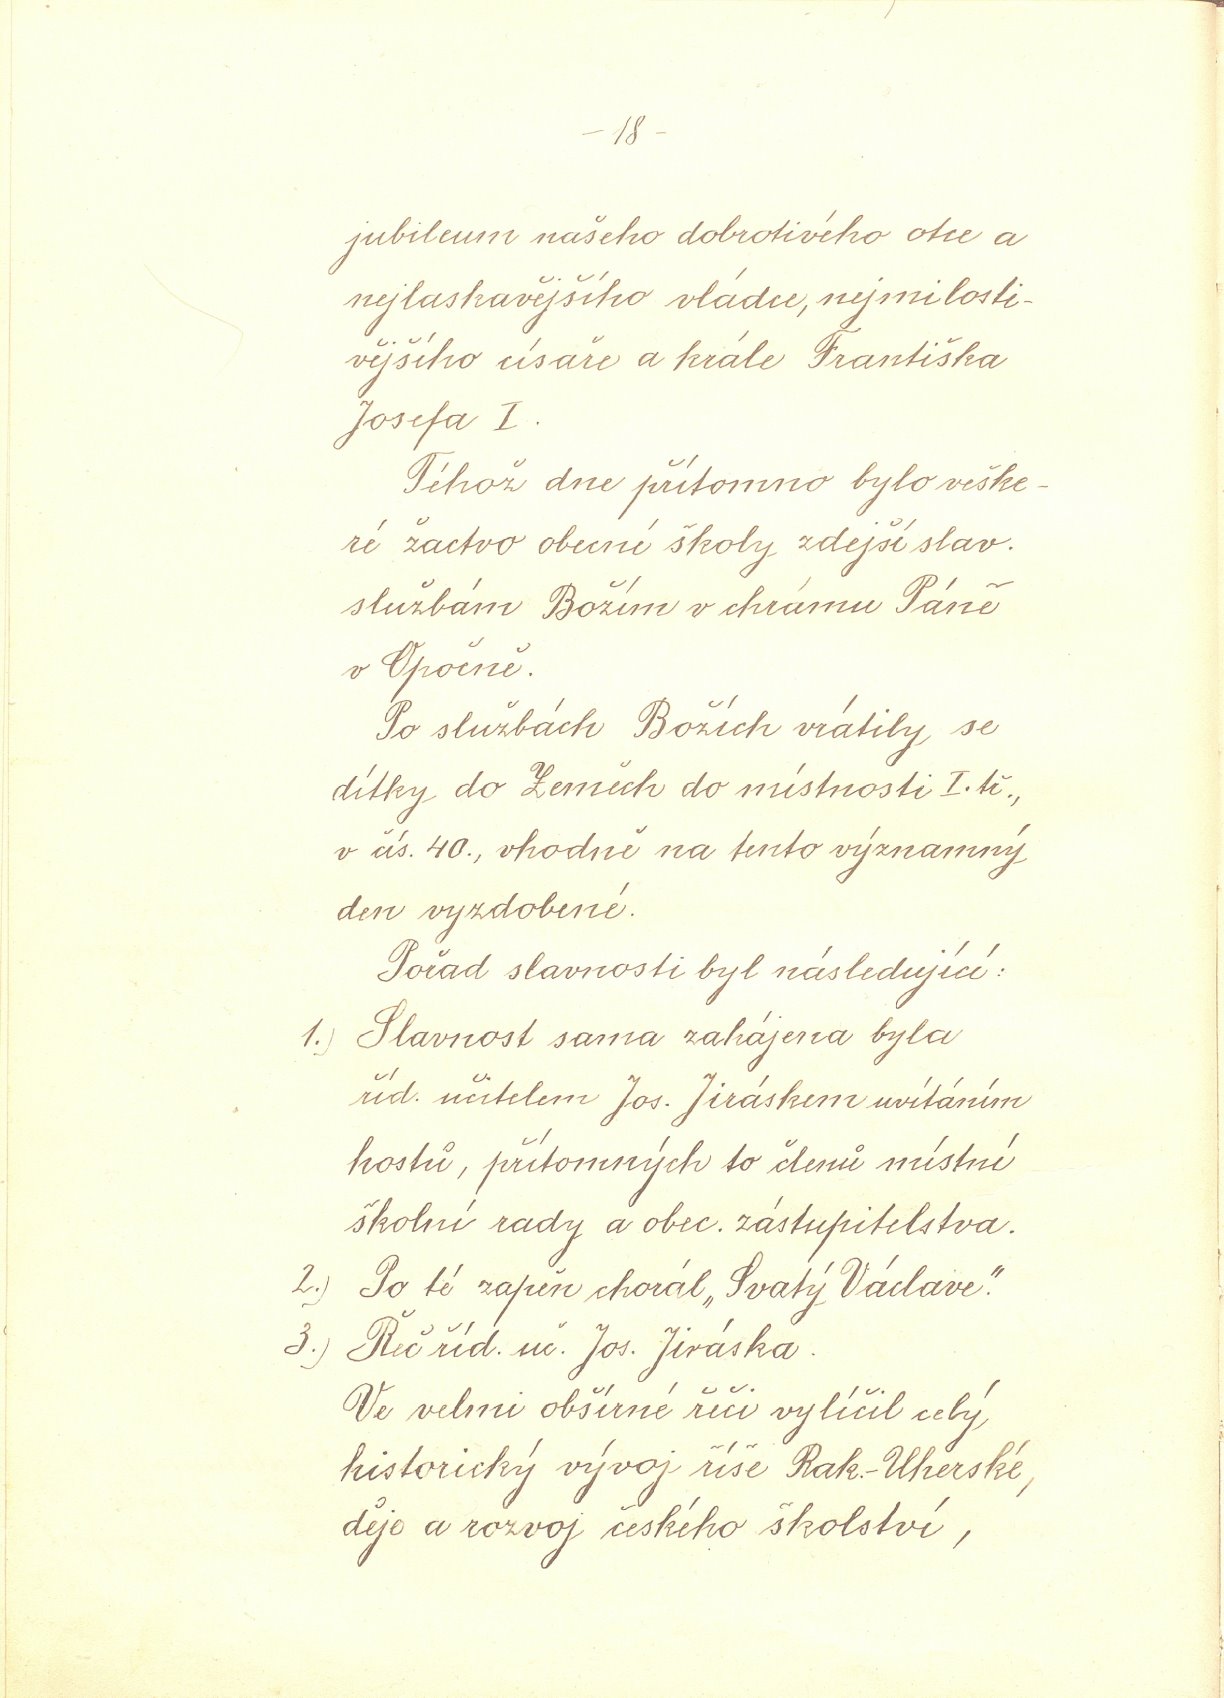 - 18 -
jubileum našeho dobrotivého otce a
nejlaskavějšího vládce, nejmilosti-
vějšího císaře a krále Františka
Josefa I.
Téhož dne přítomno bylo veške-
ré žactvo obecné školy zdejší slav.
službám Božím v chrámu Páně
v Opočně.
Po službách Božích vrátily se
dítky do Zeměch do místnosti I. tř.,
v čís. 40., vhodně na tento významný
den vyzdobené.
Pořad slavnosti byl následující:
1.) Slavnost sama zahájena byla
říd. učitelem Jos. Jiráskem uvítáním
hostů, přítomných to členů místní
školní rady a obec. zástupitelstva.
2.) Po té zapěn chorál „Svatý Václave".
3.) Řeč říd. uč. Jos. Jiráska.
Ve velmi obšírné řeči vylíčil celý
historický vývoj říše Rak.-Uherské,
děje a rozvoj českého školství,